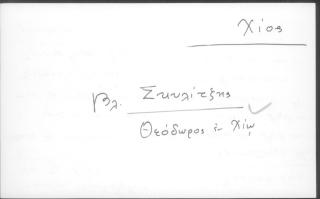 Χίος
Βλ. Σκυλίτζης
Θεόδωρος ἐν Χίῳ